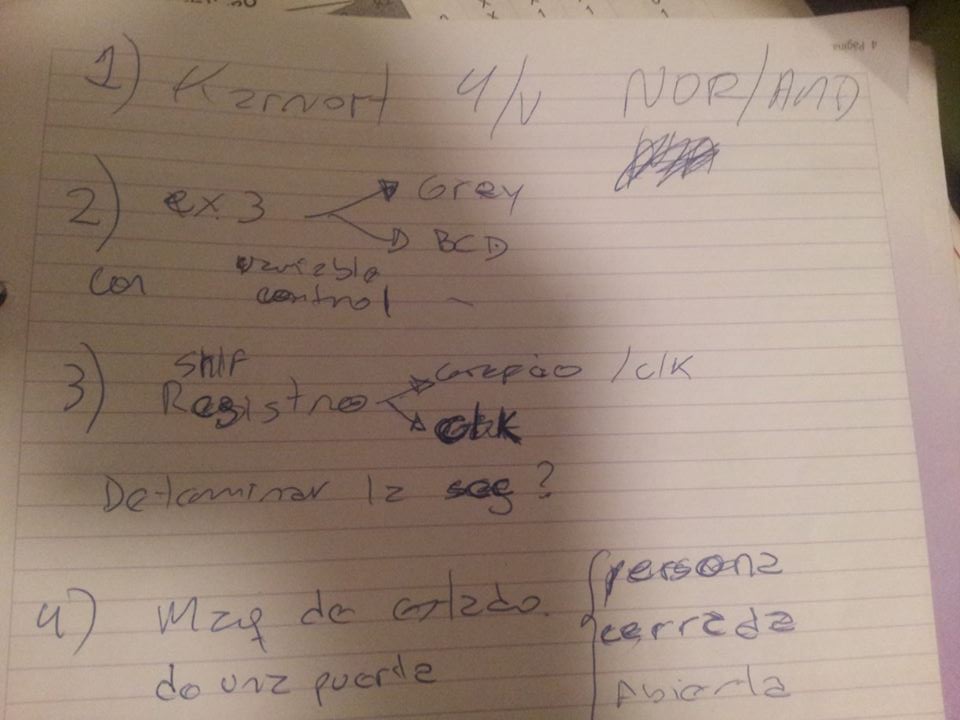 4 Página
1) Karnort 4/V NOR/AND
2) ex.3 → Grey
→ BCD
con variable
control
3) Shif
Registro → /clk
→ clk
Determinar la seg?
4) Maq de estado
de una puerta
{ persona
cerrada
Abierta